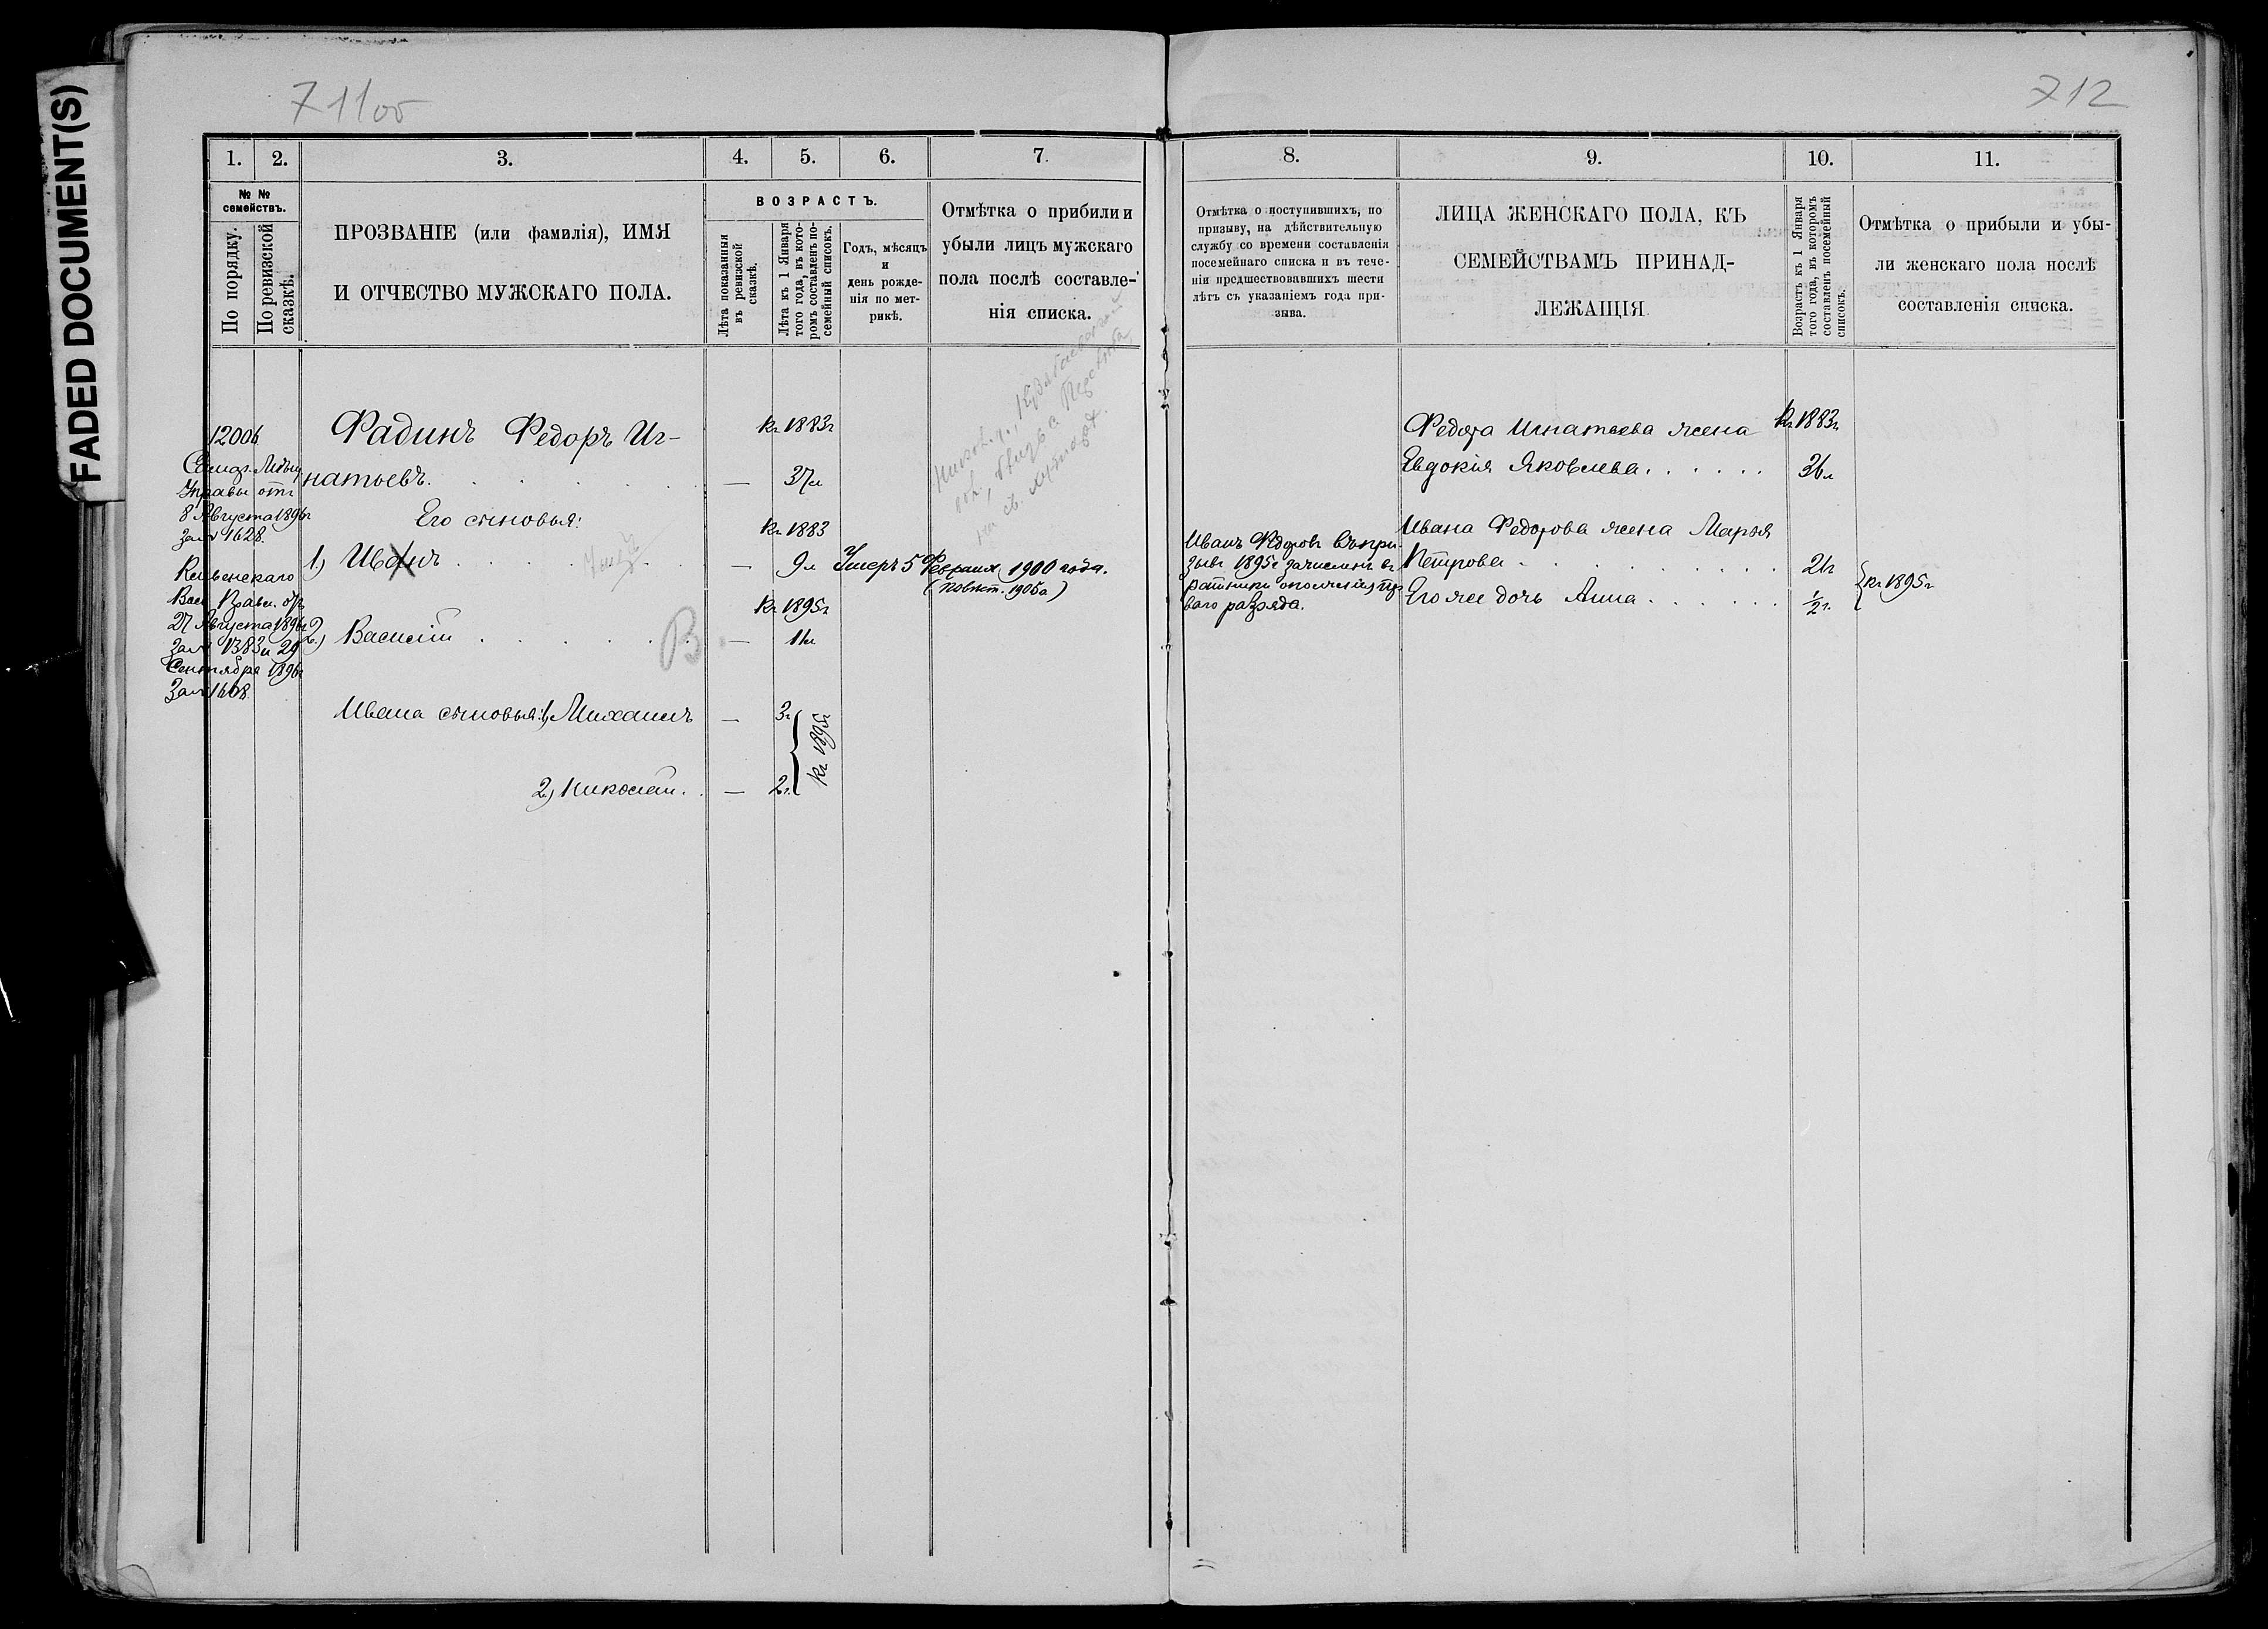 FADED DOCUMENT(S)
711об
712
1.
2.
3.
4.
5.
6.
7.
8.
9.
10.
11.
№ №
семействъ.
По порядку.
По ревизской
сказкѣ.
ПРОЗВАНІЕ (или фамилія), ИМЯ
И ОТЧЕСТВО МУЖСКАГО ПОЛА.
ВОЗРАСТЪ.
Лѣта показанныя
въ ревизской
сказкѣ.
Лѣта къ 1 Января
того года, въ кото-
ромъ составленъ по-
семейный списокъ.
Годъ, мѣсяцъ
и
день рожде-
нія по мет-
рикѣ.
Отмѣтка о прибыли и
убыли лицъ мужскаго
пола послѣ составле-
нія списка.
Отмѣтка о поступившихъ, по
призыву, на дѣйствительную
службу со времени составленія
посемейнаго списка и въ тече-
ніи предшествовавшихъ шести
лѣтъ съ указаніемъ года при-
зыва.
ЛИЦА ЖЕНСКАГО ПОЛА, КЪ
СЕМЕЙСТВАМЪ ПРИНАД-
ЛЕЖАЩІЯ
Возрастъ къ 1 Января
того года, въ которомъ
составленъ посемейный
списокъ.
Отмѣтка о прибыли и убы-
ли женскаго пола послѣ
составленія списка.
12006
Управы отъ
8 Августа 1896г
за № 1628.
Вол. Правл. отъ
27 Августа 1896г
за № 1383 и 29
Сентября 1896г
За № 1608.
Фадинъ Федоръ Иг-
натьевъ.
Его сыновья:
1) Иванъ
2) Василій
В
Ивана сыновья: 1) Михаилъ
2) Николай.
къ 1883г
— 37л
къ 1883
— 9л
къ 1895г
— 11л
— 3г
— 2г.
къ 1895г
Умеръ 5 Февраля 1900 года.
Иванъ Федоровъ въ при-
зывъ 1895г зачисленъ въ
ратники ополченія пер-
ваго разряда.
Федора Игнатьева жена
къ 1883г.
Евдокія Яковлева
36л
Ивана Федорова жена Марья
Петрова
21г
Его же дочь Анна
1/2 г.
къ 1895г